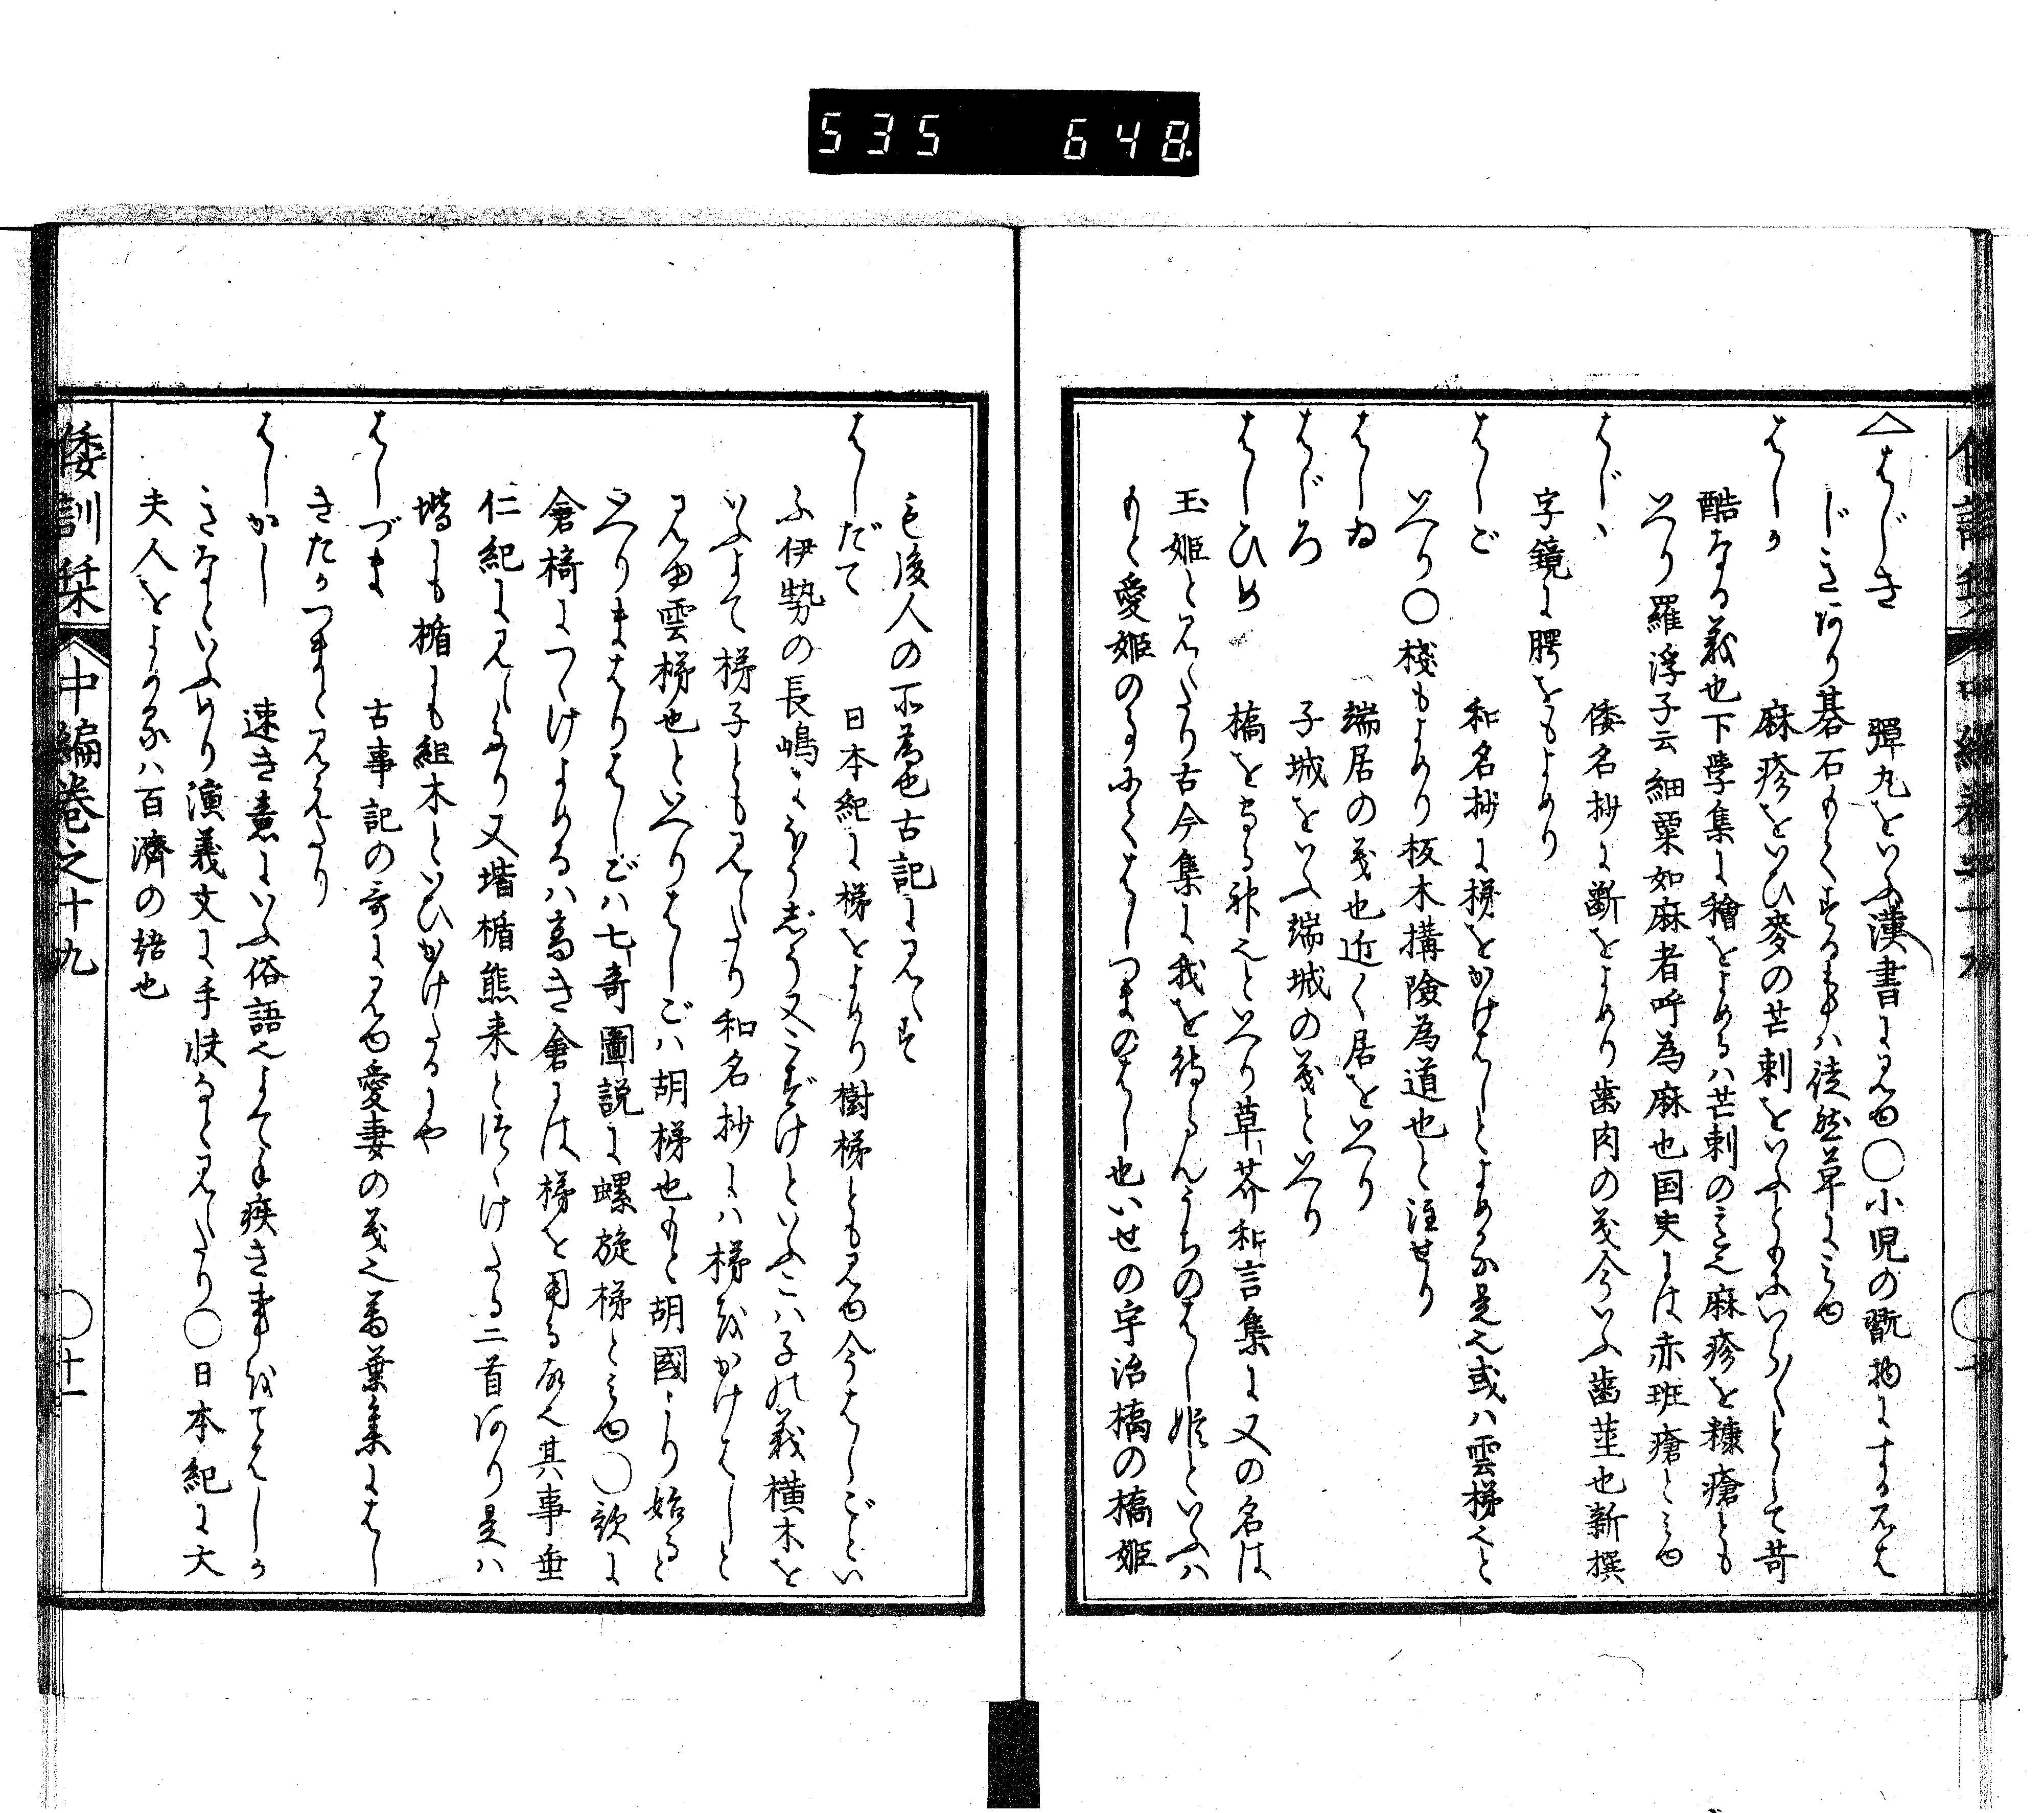 535 648
△はじき 彈丸をいふ漢書に見ゆ○小児の翫物にするには
じきあり碁石もてするをハ徒然草にみゆ
はしか 麻疹をいひ麥の芒刺をいふともにいら〱として苛
酷なる義也下學集に穭をよめるハ芒刺のみ也麻疹を糠瘡とも
いへり羅浮子云細粟如麻者呼為麻也国史には赤班瘡とみゆ
はじゝ 倭名抄に齗をよめり歯肉の義今いふ歯莖也新撰
字鏡に腭をもよめり
はしご 和名抄に梯をかけはしとよめる是也或ハ雲梯也と
いへり○棧もよめり板木構險為道也と注せり
はしゐ 端居の義也近く居をいへり
はじろ 子城をいふ端城の義といへり
はしひめ 橋を守る神也といへり草芥和言集に又の名は
玉姫と見えたり古今集に我を待らんうちのはし姫といふハ
もと愛姫のよみにてはしつまのはし也いせの宇治橋の橋姫
も後人の所為也古記に見えず
はしだて 日本紀に梯をよめり樹梯とも見ゆ今はしごとい
ふ伊勢の長嶋にほうしう又こずけといふこハ子の義横木を
いふよて梯子とも見えたり和名抄にハ梯をかけはしと
見ゆ雲梯也といへりはしごハ胡梯也もと胡國より始ると
いへりまはりはしごハ七奇圖説に螺旋梯とみゆ○歌に
倉椅につゝけよめるハ高き倉には梯を用る故也其事垂
仁紀に見えたり又堦楯熊来とつゝけたる二首あり是ハ
堦にも楯にも組木といひかけたるにや
はしづま 古事記の哥に見ゆ愛妻の義也萬葉集にはし
きたかつまと見えたり
はしかし 速き意にいふ俗語也よて手疾き事をてはしか
しきなといふめり演義文に手快なと見えたり○日本紀に大
夫人をよめるハ百濟の語也
倭訓栞 中編巻之十九 ○十一